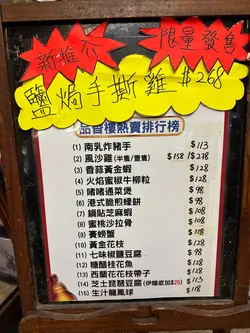 新推介
限量發售
鹽焗手撕雞 $268
品香樓熱賣排行榜
(1) 南乳炸豬手 $113
(2) 風沙雞 (半隻/壹隻) $158/$278
(3) 香蒜黃金蝦 $128
(4) 火焰蜜椒牛柳粒 $128
(5) 啫啫通菜煲 $98
(6) 港式脆煎蠔餅 $98
(7) 鍋貼芝麻蝦 $108
(8) 蜜桃沙拉骨 $108
(9) 賽螃蟹 $118
(10) 黃金花枝 $128
(11) 七味椒鹽豆腐 $98
(12) 糖醋桂花魚 $128
(13) 西蘭花花枝帶子 $128
(14) 芝士琵琶豆腐 (伊麵底加$25) $113
(15) 生汁龍鳳球 $118